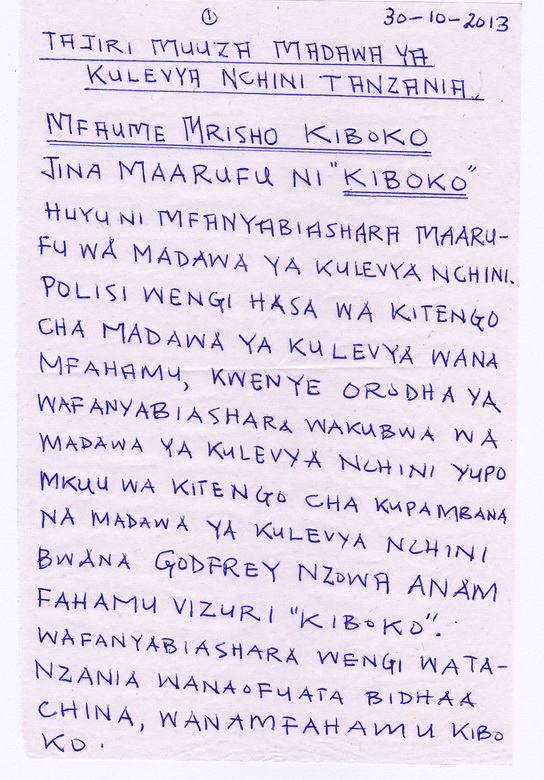 1
30-10-2013
TAJIRI MUUZA MADAWA YA
KULEVYA NCHINI TANZANIA.
MFAUME MRISHO KIBOKO
JINA MAARUFU NI "KIBOKO"
HUYU NI MFANYABIASHARA MAARU-
FU WA MADAWA YA KULEVYA NCHINI.
POLISI WENGI HASA WA KITENGO
CHA MADAWA YA KULEVYA WANA
MFAHAMU, KWENYE ORODHA YA
WAFANYABIASHARA WAKUBWA WA
MADAWA YA KULEVYA NCHINI YUPO
MKUU WA KITENGO CHA KUPAMBANA
NA MADAWA YA KULEVYA NCHINI
BWANA GODFREY NZOWA ANAM
FAHAMU VIZURI "KIBOKO".
WAFANYABIASHARA WENGI WATA-
NZANIA WANAOFUATA BIDHAA
CHINA, WANAMFAHAMU KIBO
KO.